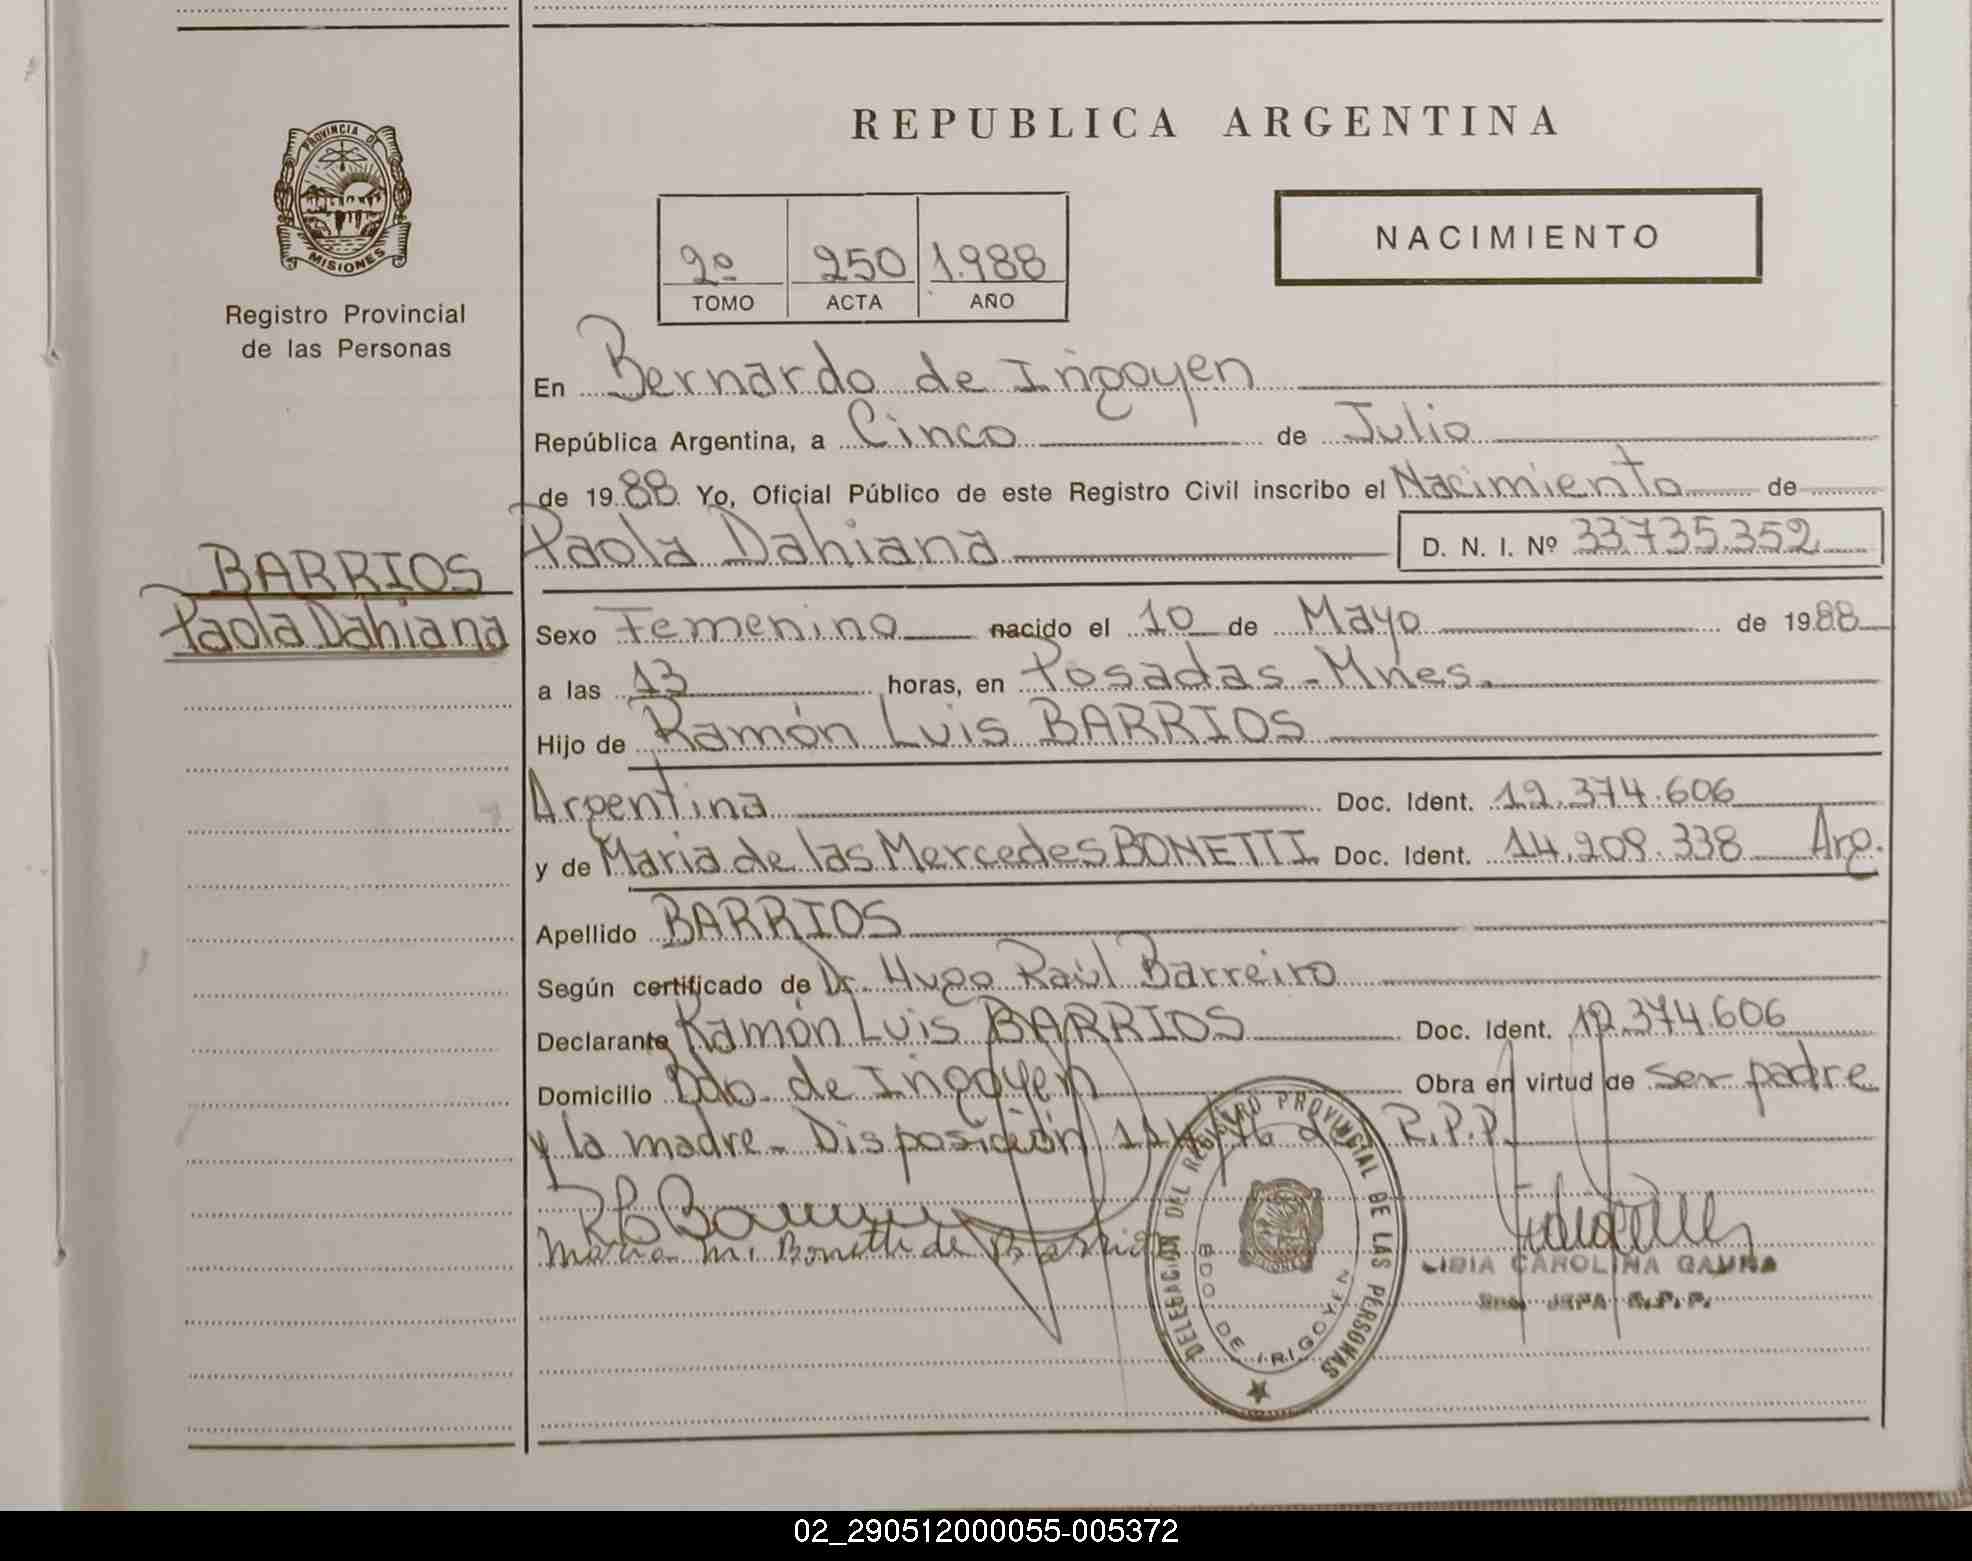 REPUBLICA ARGENTINA
PROVINCIA DE
MISIONES
Registro Provincial
de las Personas
2º 250 1.988
TOMO ACTA AÑO
NACIMIENTO
En Bernardo de Irigoyen
República Argentina, a Cinco de Julio
de 1988 Yo, Oficial Público de este Registro Civil inscribo el Nacimiento de
Paola Dahiana D. N. I. Nº 33.735.352
BARRIOS
Paola Dahiana
Sexo Femenino nacido el 10 de Mayo de 1988
a las 13 horas, en Posadas - Mnes.
Hijo de Ramón Luis BARRIOS
Argentina Doc. Ident. 12.374.606
y de Maria de las Mercedes BONETTI Doc. Ident. 14.209.338 Arg.
Apellido BARRIOS
Según certificado de Dr. Hugo Raúl Barreiro
Declarante Ramón Luis BARRIOS Doc. Ident. 12.374.606
Domicilio Bdo. de Irigoyen Obra en virtud de ser padre
y la madre - Disposición R.P.P.
Maria M. Bonetti de Barrios
DELEGACION DEL REGISTRO PROVINCIAL DE LAS PERSONAS
BDO DE IRIGOYEN
LIBIA CAROLINA GAUNA
JEFA R.P.P.
02_290512000055-005372